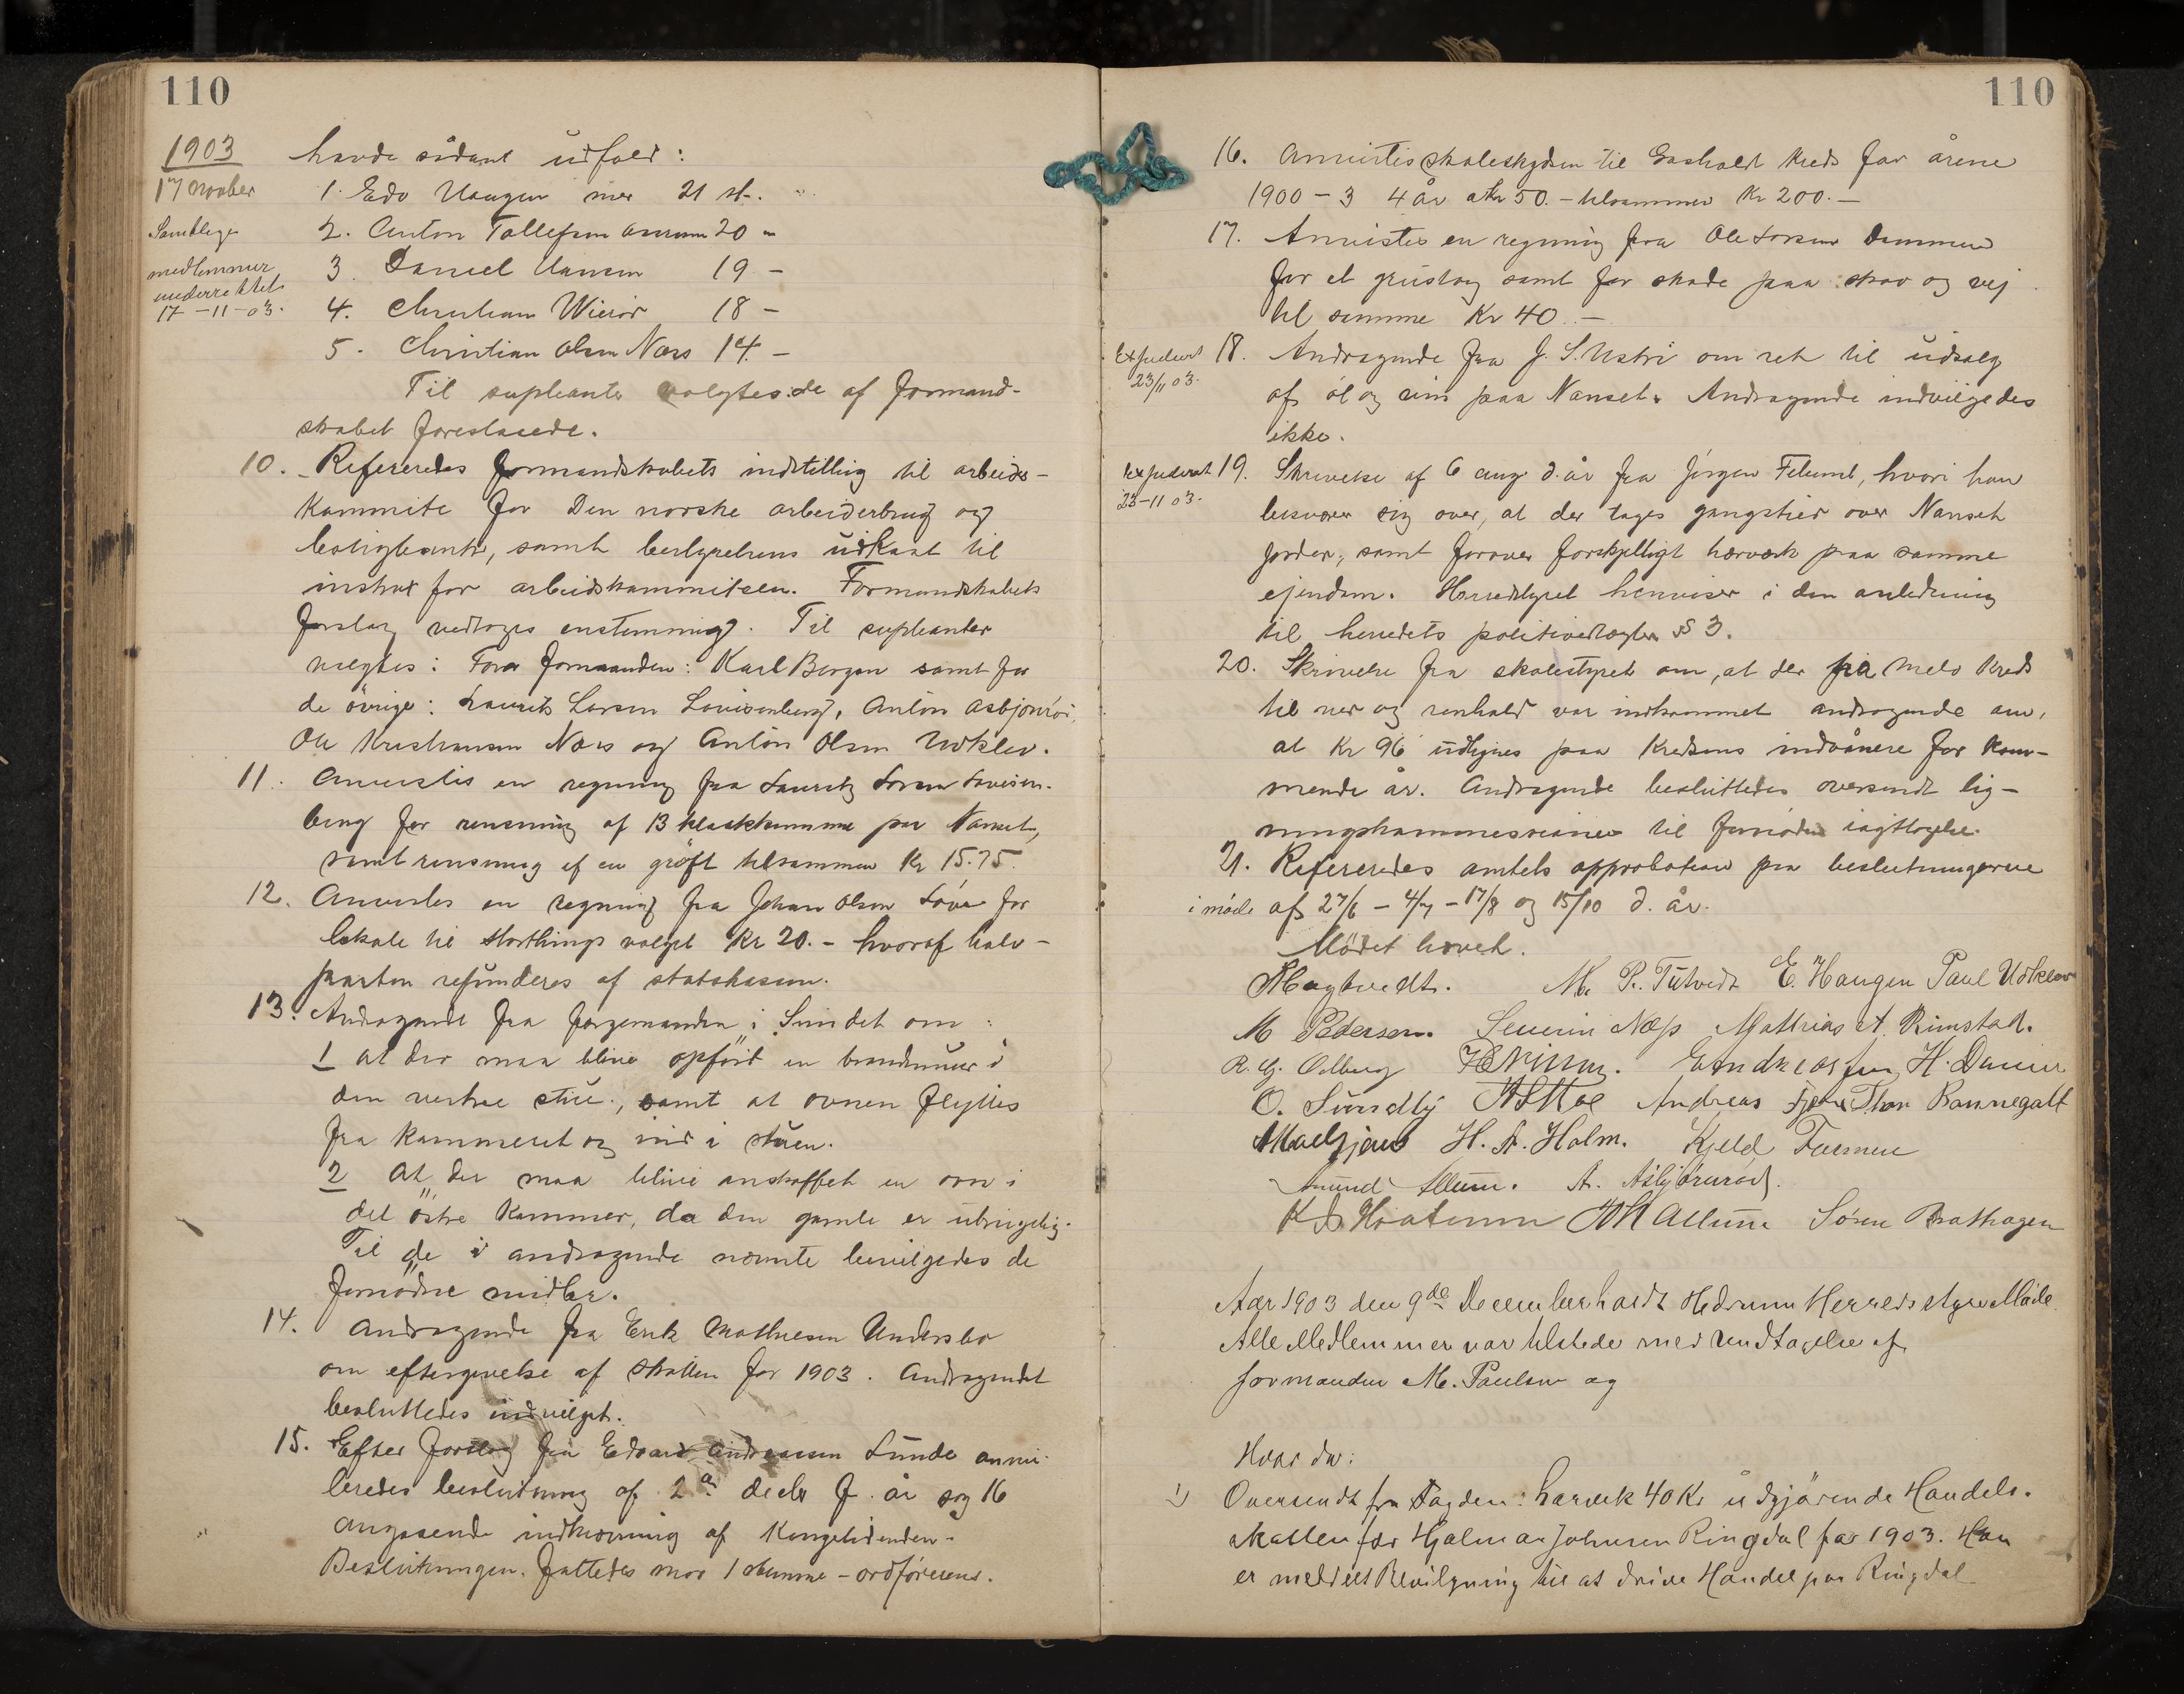 110
1903
17 November
Samtlige
medlemmer
underrettet
17-11-03.
havde sådant udfald:
1. Edv Haugen med 21 st.
2. Anton Tollefsen Amum 20 -
3. Daniel Hansen 19 -
4. Christian Wierød 18 -
5. Christian Olsen Næs 14 -
Til supleanter valgtes de af formand-
skabet foreslaaede.
10. Refereredes formandskabets indstilling til arbeids-
kommite for Den norske arbeiderbrug og
boligbank, samt bestyrelsens udkast til
instrux for arbeidskommiteen. Formandskabets
forslag vedtoges enstemmigt. Til supleanter
valgtes: For formanden: Karl Bergan samt for
de övrige: Laurits Larsen Lovisenberg, Anton Asbjønrød,
Ole Kristiansen Næs og Anton Olsen Udklev.
11. Anvistes en regning fra Lauritz Larsen Lovisen-
berg for rensning af 13 kloakkumme paa Nanset,
samt rensning af en gröft tilsammen Kr 15.75.
12. Anvistes en regning fra Johan Olsen Löve for
lokale til storthingsvalget Kr 20.- hvoraf halv-
parten refunderes af statskassen.
13. Andragende fra forgemanden i Sundet om:
1 at der maa blive opfört en brandmur i
den vestre stue, samt at ovnen flyttes
fra kammeret og ind i stuen.
2 at der maa blive anskaffet en ovn i
det östre kammer, da den gamle er ubrugelig.
Til de i andragende nævnte bevilgedes de
fornödne midler.
14. Andragende fra Erik Mathisen Undersbo
om eftergivelse af skatten for 1903. Andragendet
besluttedes indvilget.
15. Efter forslag fra Edvard Andreassen Lunde annu-
leredes beslutning af 2den decbr f. år sag 16
angaaende indkjøring af Kongetidenden.
Beslutningen fattedes mod 1 stemme - ordförerens.
110
16. Anvistes skoleskyden til Gashalt kreds for årene
1900-3 4 år a Kr 50.- tilsammen Kr 200.-
17. Anvistes en regning fra Ole Larsen Dammen
for et grustag samt for skade paa skov og vej
til samme Kr 40.-
Expedert
23/11 03.
18. Andragende fra J. S. Ustri om ret til udsalg
af öl og vin paa Nanset. Andragende indvilgedes
ikke.
Expedert
23-11 03.
19. Skrivelse af 6 aug d. år fra Jörgen Felumb, hvori han
besværer sig over, at der tages gangstier over Nanset
jorder, samt foröver forskjelligt hærværk paa samme
ejendom. Herredstyret henviser i den anledning
til herredets politivedtægter § 3.
20. Skrivelse fra skolestyret om, at der fra Melø kreds
til ved og renhold var indkommet andragende om,
at Kr 96 udlignes paa kredsens indvånere for kom-
mende år. Andragende besluttedes oversendt lig-
ningskommissionen til fornöden iagttagelse.
21. Refereredes amtets approbation paa beslutningerne
i möde af 27/6 - 4/7 - 17/8 og 15/10 d. år.
Mödet hævet.
M. P. Tutvedt E. Haugen Paul Udklev
M Pedersen. Severin Næss Mathias A. Rimstad.
R. G. Odberg
O. Sundby Andreas Bonnegolt
H. A. Holm. Kjeld Farmen
Amund Allum. A. Asbjørnrød.
Allum Søren Brathagen
Aar 1903 den 9de December holdt Hedrum Herredsstyre Møde.
Alle Medlemmer var tilstede med Undtagelse af
formanden M. Paulsen og
Hvor da:
1) Oversendt fra Fogden i Larvik 40 Kr udgjørende Handels-
skatten for Hjalmar Johnsen Ringdal for 1903. Han
er meddelt Bevilgning til at drive Handel paa Ringdal